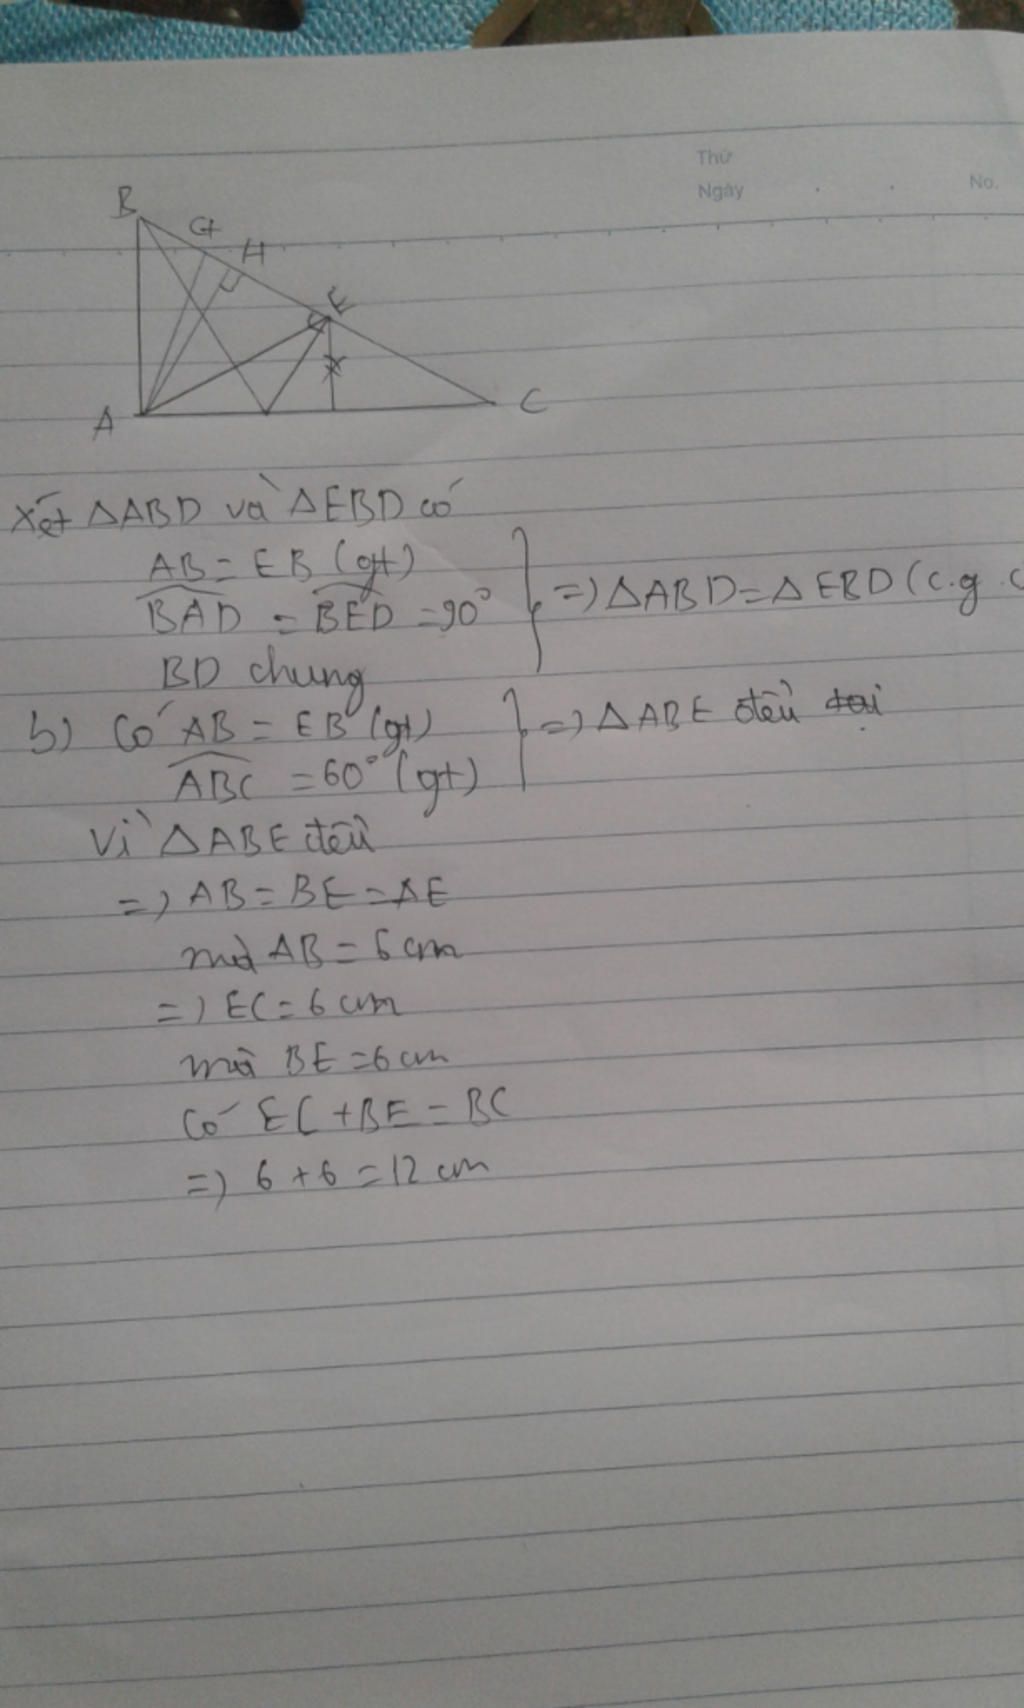 Thứ
Ngày . . No.
B
G
H
E
A
C
Xét ΔABD và ΔEBD có
AB = EB (gt)
BAD = BED = 90° => ΔABD = ΔEBD (c.g.c
BD chung
b) Có AB = EB (gt) => ΔABE đều
ABC = 60° (gt)
Vì ΔABE đều
=> AB = BE = AE
mà AB = 6 cm
=> EC = 6 cm
mà BE = 6 cm
Có EC + BE = BC
=> 6 + 6 = 12 cm